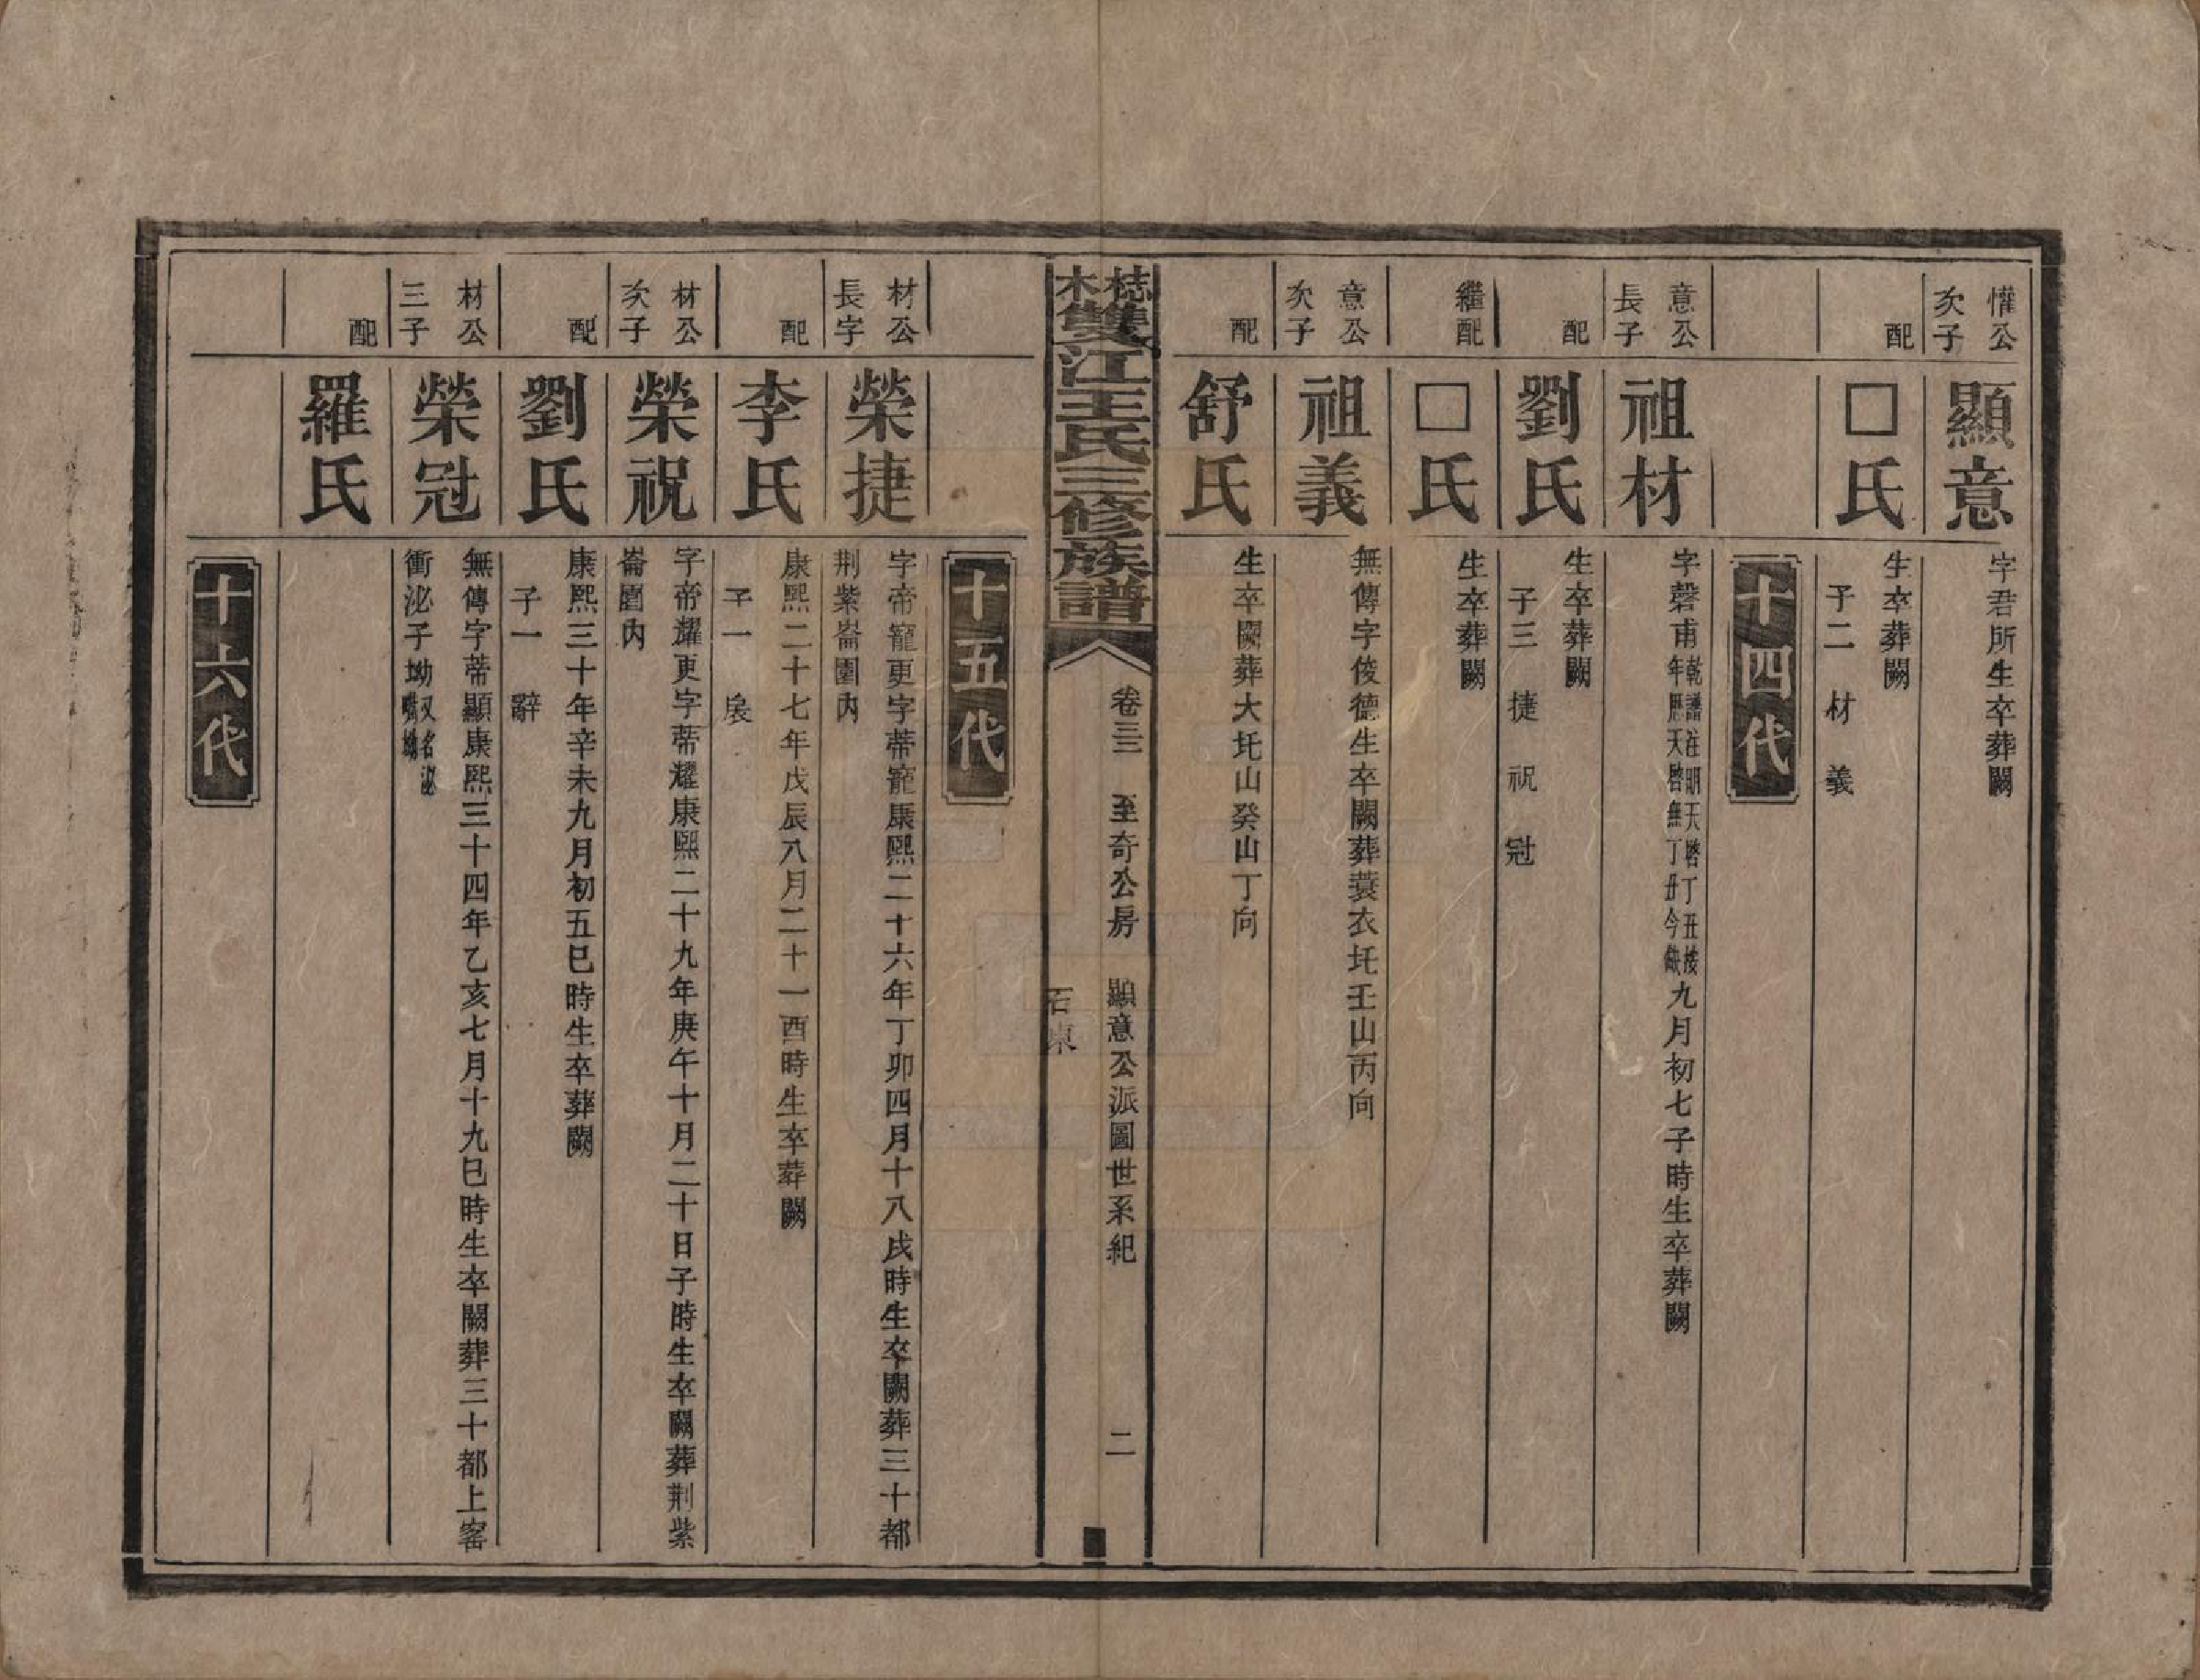 懽公次子
顯意
字君所生卒葬闕
配
□氏
生卒葬闕
子二 材 義
十四代
意公長子
祖材
字磬甫乾譜注明天啓丁丑按年歷天啓無丁丑今缺九月初七子時生卒葬闕
配
劉氏
生卒葬闕
子三 捷 祝 冠
繼配
□氏
生卒葬闕
意公次子
祖義
無傳字俊德生卒闕葬蓑衣圫壬山丙向
配
舒氏
生卒闕葬大圫山癸山丁向
梽木雙江王氏三修族譜
卷三三 至奇公房 顯意公派圖世系紀
二
石東
十五代
材公長字
榮捷
字帝寵更字蒂寵康熙二十六年丁卯四月十八戌時生卒闕葬三十都
荆紫崙園內
配
李氏
康熙二十七年戊辰八月二十一酉時生卒葬闕
子一 扆
材公次子
榮祝
字帝耀更字蒂耀康熙二十九年庚午十月二十日子時生卒闕葬荆紫
崙園內
配
劉氏
康熙三十年辛未九月初五巳時生卒葬闕
子一 辭
材公三子
榮冠
無傳字蒂顯康熙三十四年乙亥七月十九巳時生卒闕葬三十都上窰
衝泌子坳又名泌
配
羅氏
十六代